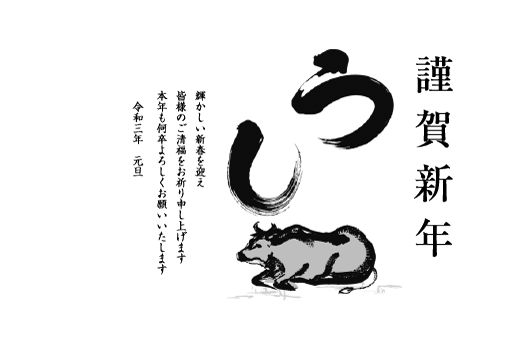 謹賀新年
うし
輝かしい新春を迎え
皆様のご清福をお祈り申し上げます
本年も何卒よろしくお願いいたします
令和三年　元旦